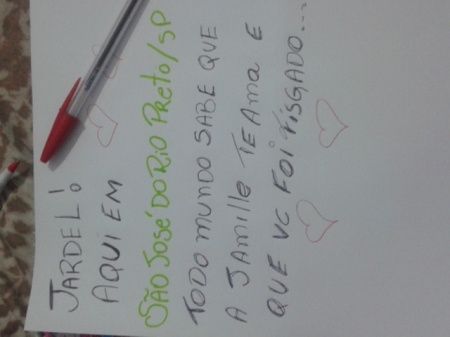 JARDEL!
AQUI EM
SÃO JOSÉ DO RIO PRETO/SP
TODO MUNDO SABE QUE
A JAMILLE TE AMA E
QUE VC FOI FISGADO...